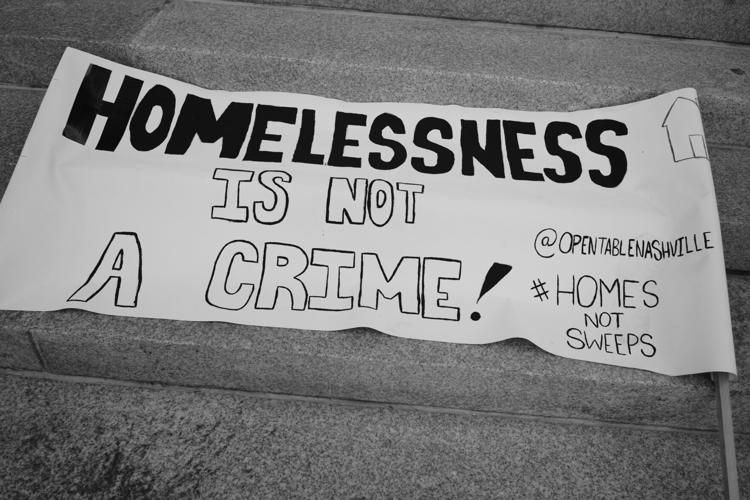 HOMELESSNESS
IS NOT
A CRIME!
@OPENTABLENASHVILLE
#HOMES
NOT
SWEEPS